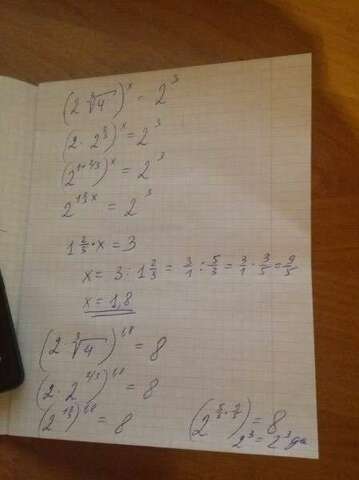 (2 ∛4)^x = 2^3
(2 · 2^(2/3))^x = 2^3
(2^(1+2/3))^x = 2^3
2^(1 2/3 x) = 2^3
1 2/3 · x = 3
x = 3 : 1 2/3 = 3/1 : 5/3 = 3/1 · 3/5 = 9/5
x = 1,8
(2 · ∛4)^1,8 = 8
(2 · 2^(2/3))^1,8 = 8
(2^(1 2/3))^1,8 = 8
(2^(5/3 · 9/5)) = 8
2^3 = 2^3 да